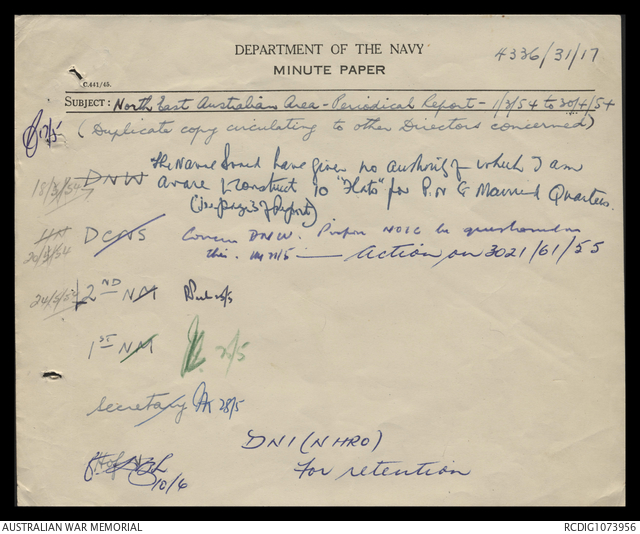 DEPARTMENT OF THE NAVY
4336/31/17
MINUTE PAPER
C.441/45.
SUBJECT: North East Australian Area - Periodical Report - 1/3/54 to 30/4/54
(Duplicate copy circulating to other Directors concerned)
17/5
18/5/54 DNW The Naval Board have given no authority of which I am
aware to construct 10 "Flats" for P.N.G Married Quarters.
(See page 3 of Report)
DCNS Concur DNW. Propose NOIC be questioned on
this. 21/5 — Action on 3021/61/55
24/5/54 2ND NM 25/5
1ST NM
Secretary 28/5
DNI (NHRO)
For retention
10/6
AUSTRALIAN WAR MEMORIAL
RCDIG1073956